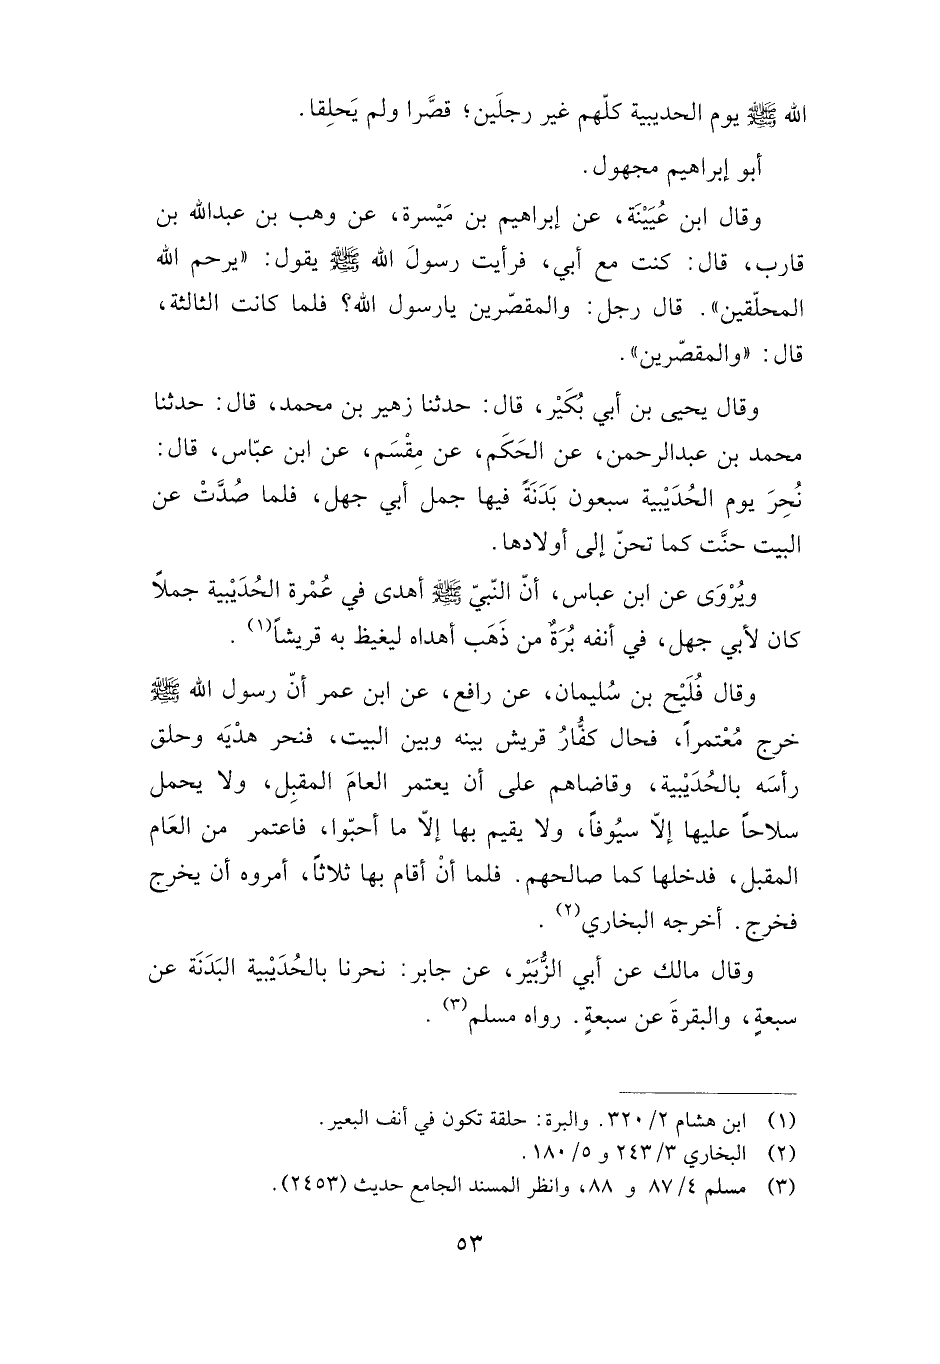 الله ﷺ يوم الحديبية كلّهم غير رجلَين؛ قصَّرا ولم يَحلِقا.
أبو إبراهيم مجهول.
وقال ابن عُيَيْنَة، عن إبراهيم بن مَيْسرة، عن وهب بن عبدالله بن
قارب، قال: كنت مع أبي، فرأيت رسولَ الله ﷺ يقول: «يرحم الله
المحلّقين». قال رجل: والمقصّرين يارسول الله؟ فلما كانت الثالثة،
قال: «والمقصّرين».
وقال يحيى بن أبي بُكَيْر، قال: حدثنا زهير بن محمد، قال: حدثنا
محمد بن عبدالرحمن، عن الحَكَم، عن مِقْسَم، عن ابن عبّاس، قال:
نُحِرَ يوم الحُدَيْبية سبعون بَدَنَةً فيها جمل أبي جهل، فلما صُدَّتْ عن
البيت حنَّت كما تحنّ إلى أولادها.
ويُرْوَى عن ابن عباس، أنّ النّبيّ ﷺ أهدى في عُمْرة الحُدَيْبية جملاً
كان لأبي جهل، في أنفه بُرَةٌ من ذَهَب أهداه ليغيظ به قريشاً(١) .
وقال فُلَيْح بن سُليمان، عن رافع، عن ابن عمر أنّ رسول الله ﷺ
خرج مُعْتمراً، فحال كفُّارُ قريش بينه وبين البيت، فنحر هدْيَه وحلق
رأسَه بالحُدَيْبية، وقاضاهم على أن يعتمر العامَ المقبِل، ولا يحمل
سلاحاً عليها إلّا سيُوفاً، ولا يقيم بها إلّا ما أحبّوا، فاعتمر من العَام
المقبل، فدخلها كما صالحهم. فلما أنْ أقام بها ثلاثاً، أمروه أن يخرج
فخرج. أخرجه البخاري(٢) .
وقال مالك عن أبي الزُّبَيْر، عن جابر: نحرنا بالحُدَيْبية البَدَنَة عن
سبعةٍ، والبقرةَ عن سبعةٍ. رواه مسلم(٣) .
(١) ابن هشام ٣٢٠/٢. والبرة: حلقة تكون في أنف البعير.
(٢) البخاري ٢٤٣/٣ و ١٨٠/٥.
(٣) مسلم ٨٧/٤ و ٨٨، وانظر المسند الجامع حديث (٢٤٥٣).
٥٣